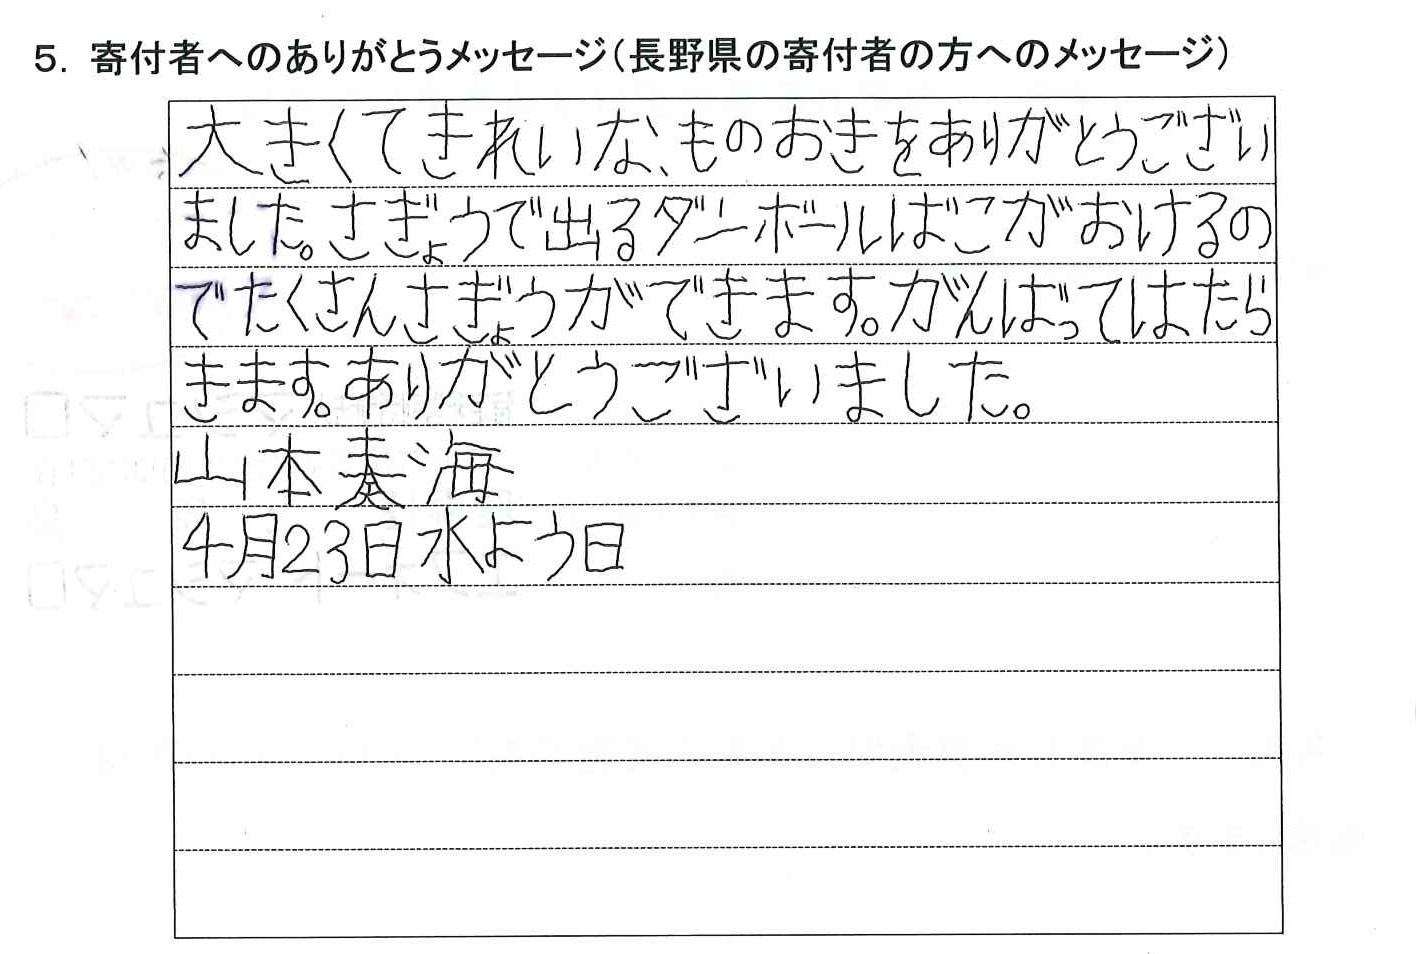 5. 寄付者へのありがとうメッセージ(長野県の寄付者の方へのメッセージ)
大きくてきれいな、ものおきをありがとうござい
ました。さぎょうで出るダンボールばこがおけるの
でたくさんさぎょうができます。がんばってはたら
きます。ありがとうございました。
山本奏海
4月23日水よう日